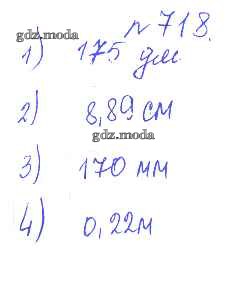 № 718.
gdz.moda
1) 175 дм
2) 8,89 см
gdz.moda
3) 170 мм
4) 0,22м